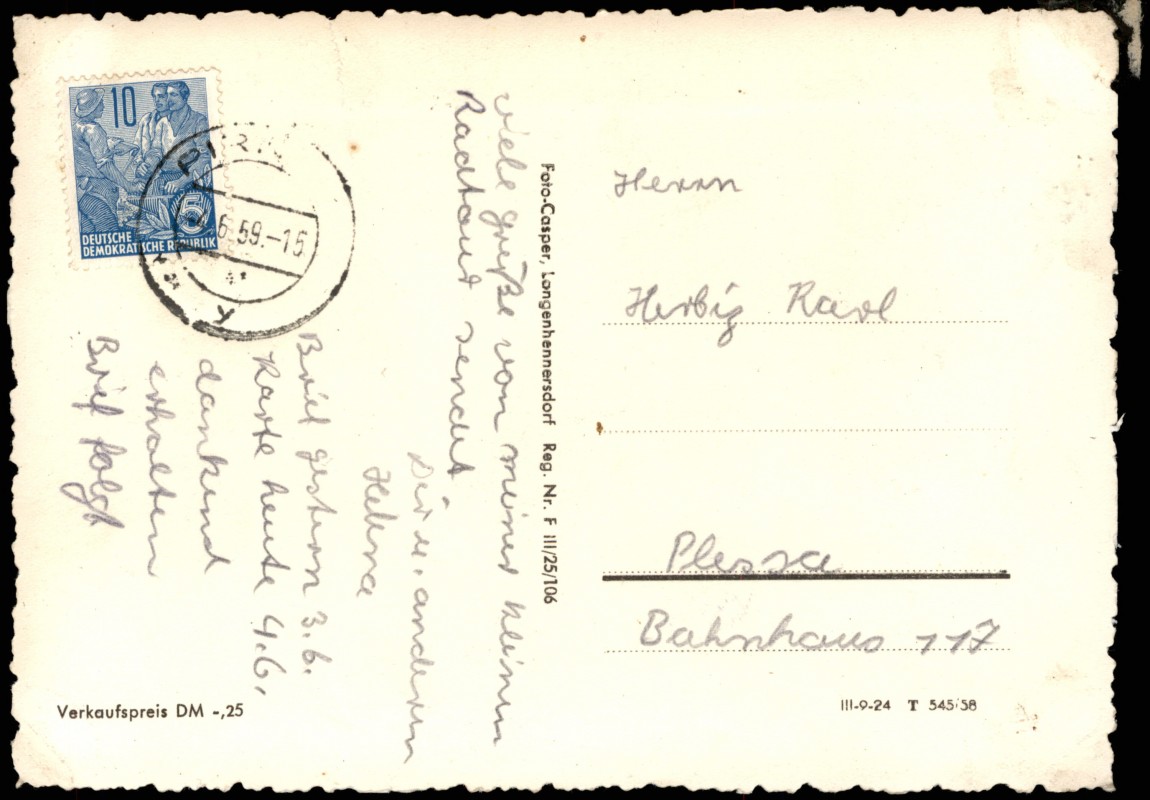 10
5
DEUTSCHE
DEMOKRATISCHE REPUBLIK
PIRNA
4.6.59.-15
Viele grüße von meiner kleinen
Radtour sendet
Dir u. anderen
Helena
Brief gestern 3.6.
Karte heute 4.6.
dankend
erhalten
Brief folgt
Foto-Casper, Langenhennersdorf Reg. Nr. F III/25/106
Herrn
Herbig Karl
Plessa
Bahnhaus 117
Verkaufspreis DM -,25
III-9-24 T 545/58